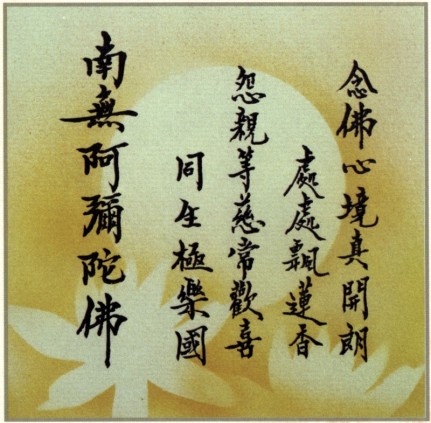 念佛心境真開朗
處處飄蓮香
怨親等慈常歡喜
同生極樂國
南無阿彌陀佛